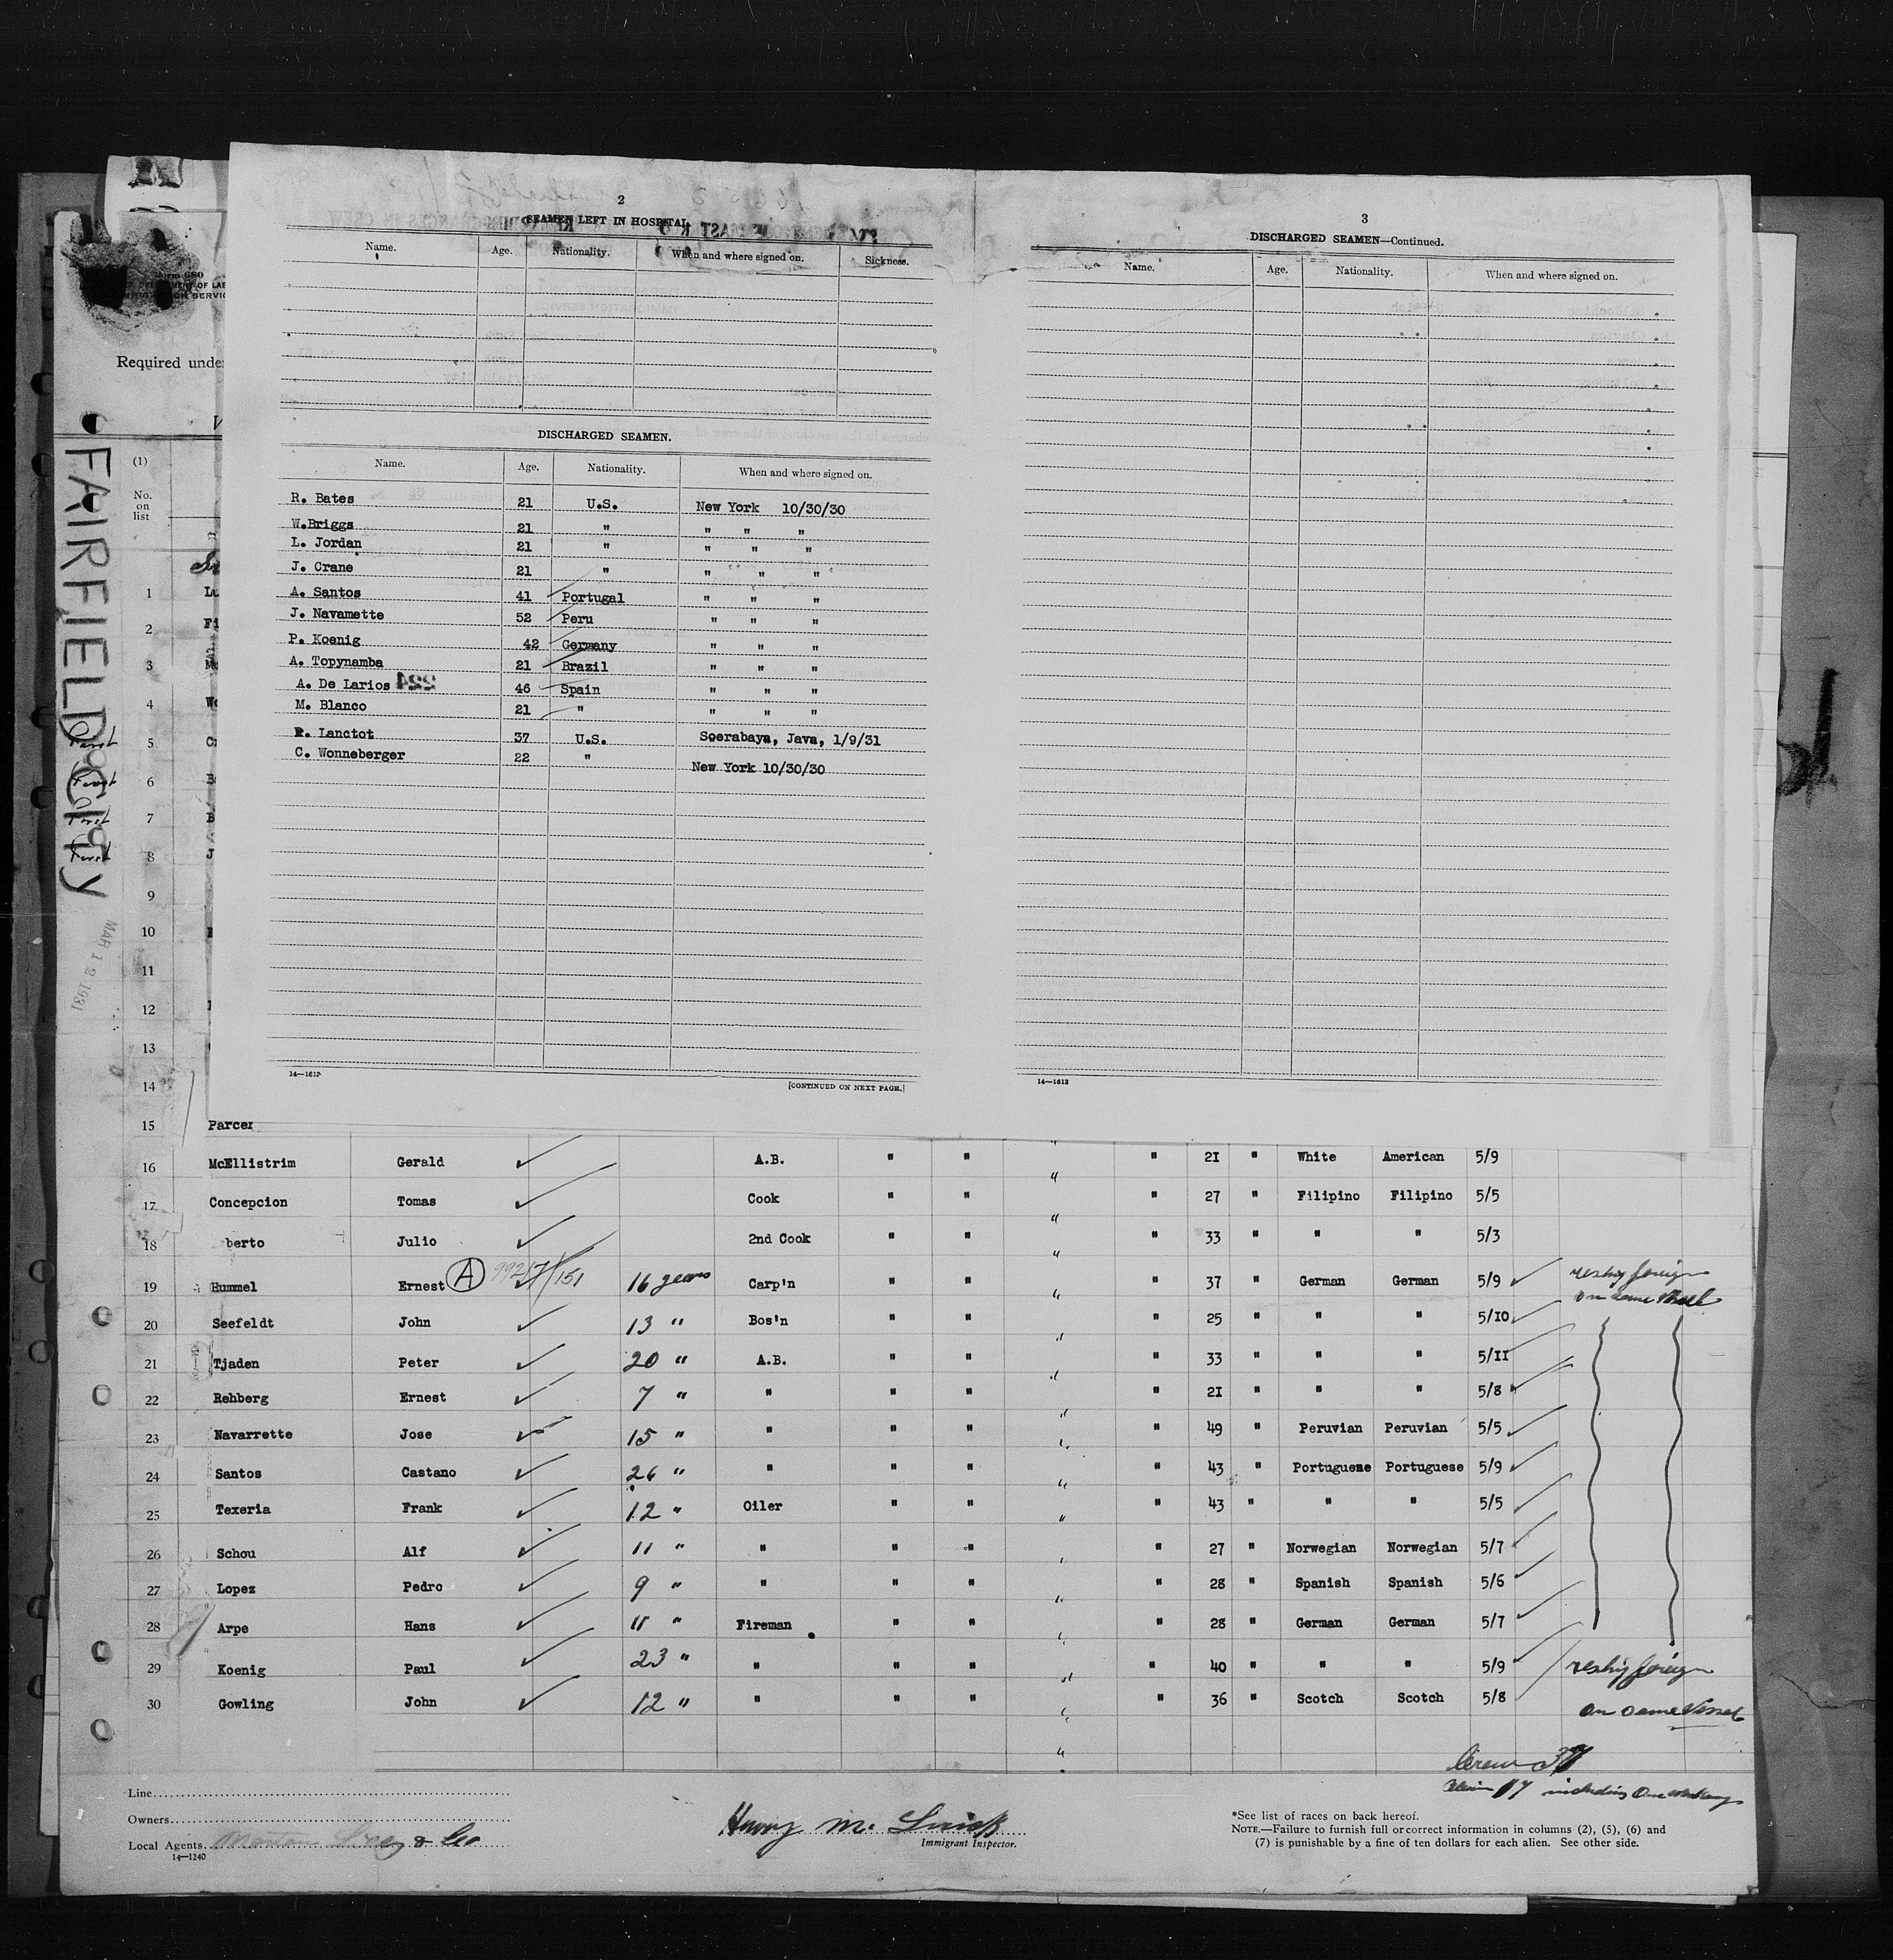 2
SEAMEN LEFT IN HOSPITAL
Name. Age. Nationality. When and where signed on. Sickness.
DISCHARGED SEAMEN.
Name. Age. Nationality. When and where signed on.
R. Bates 21 U.S. New York 10/30/30
W.Briggs 21 " " " "
L. Jordan 21 " " " "
J. Crane 21 " " " "
A. Santos 41 Portugal " " "
J. Navamette 52 Peru " " "
P. Koenig 42 Germany " " "
A. Topynamba 21 Brazil " " "
A. De Larios 46 Spain " " "
M. Blanco 21 " " " "
R. Lanctot 37 U.S. Soerabaya, Java, 1/9/31
C. Wonneberger 22 " New York 10/30/30
14—1613
[CONTINUED ON NEXT PAGE.]
3
DISCHARGED SEAMEN—Continued.
Name. Age. Nationality. When and where signed on.
14—1613
Required unde
FAIRFIELD City
MAR 12 1931
(1)
No. on list
1
2
3
4
First 5
First 6
First 7
First 8
9
10
11
12
13
14
15 Parcer
16 McEllistrim Gerald A.B. " " " " 21 " White American 5/9
17 Concepcion Tomas Cook " " " " 27 " Filipino Filipino 5/5
18 berto Julio 2nd Cook " " " " 33 " " " 5/3
19 Hummel Ernest A 16 years Carp'n " " " " 37 " German German 5/9 reship foreign
on same vessel
20 Seefeldt John 13 " Bos'n " " " " 25 " " " 5/10
21 Tjaden Peter 20 " A.B. " " " " 33 " " " 5/11
22 Rehberg Ernest 7 " " " " " " 21 " " " 5/8
23 Navarrette Jose 15 " " " " " " 49 " Peruvian Peruvian 5/5
24 Santos Castano 26 " " " " " " 43 " Portuguene Portuguese 5/9
25 Texeria Frank 12 " Oiler " " " " 43 " " " 5/5
26 Schou Alf 11 " " " " " " 27 " Norwegian Norwegian 5/7
27 Lopez Pedro 9 " " " " " " 28 " Spanish Spanish 5/6
28 Arpe Hans 11 " Fireman " " " " 28 " German German 5/7
29 Koenig Paul 23 " " " " " " 40 " " " 5/9 reship foreign
30 Gowling John 12 " " " " " " 36 " Scotch Scotch 5/8 on same Vessel
Crew 37
17 including One
Line
Owners
Local Agents & Co
14—1240
Harry M.
Immigrant Inspector.
*See list of races on back hereof.
NOTE.—Failure to furnish full or correct information in columns (2), (5), (6) and
(7) is punishable by a fine of ten dollars for each alien. See other side.